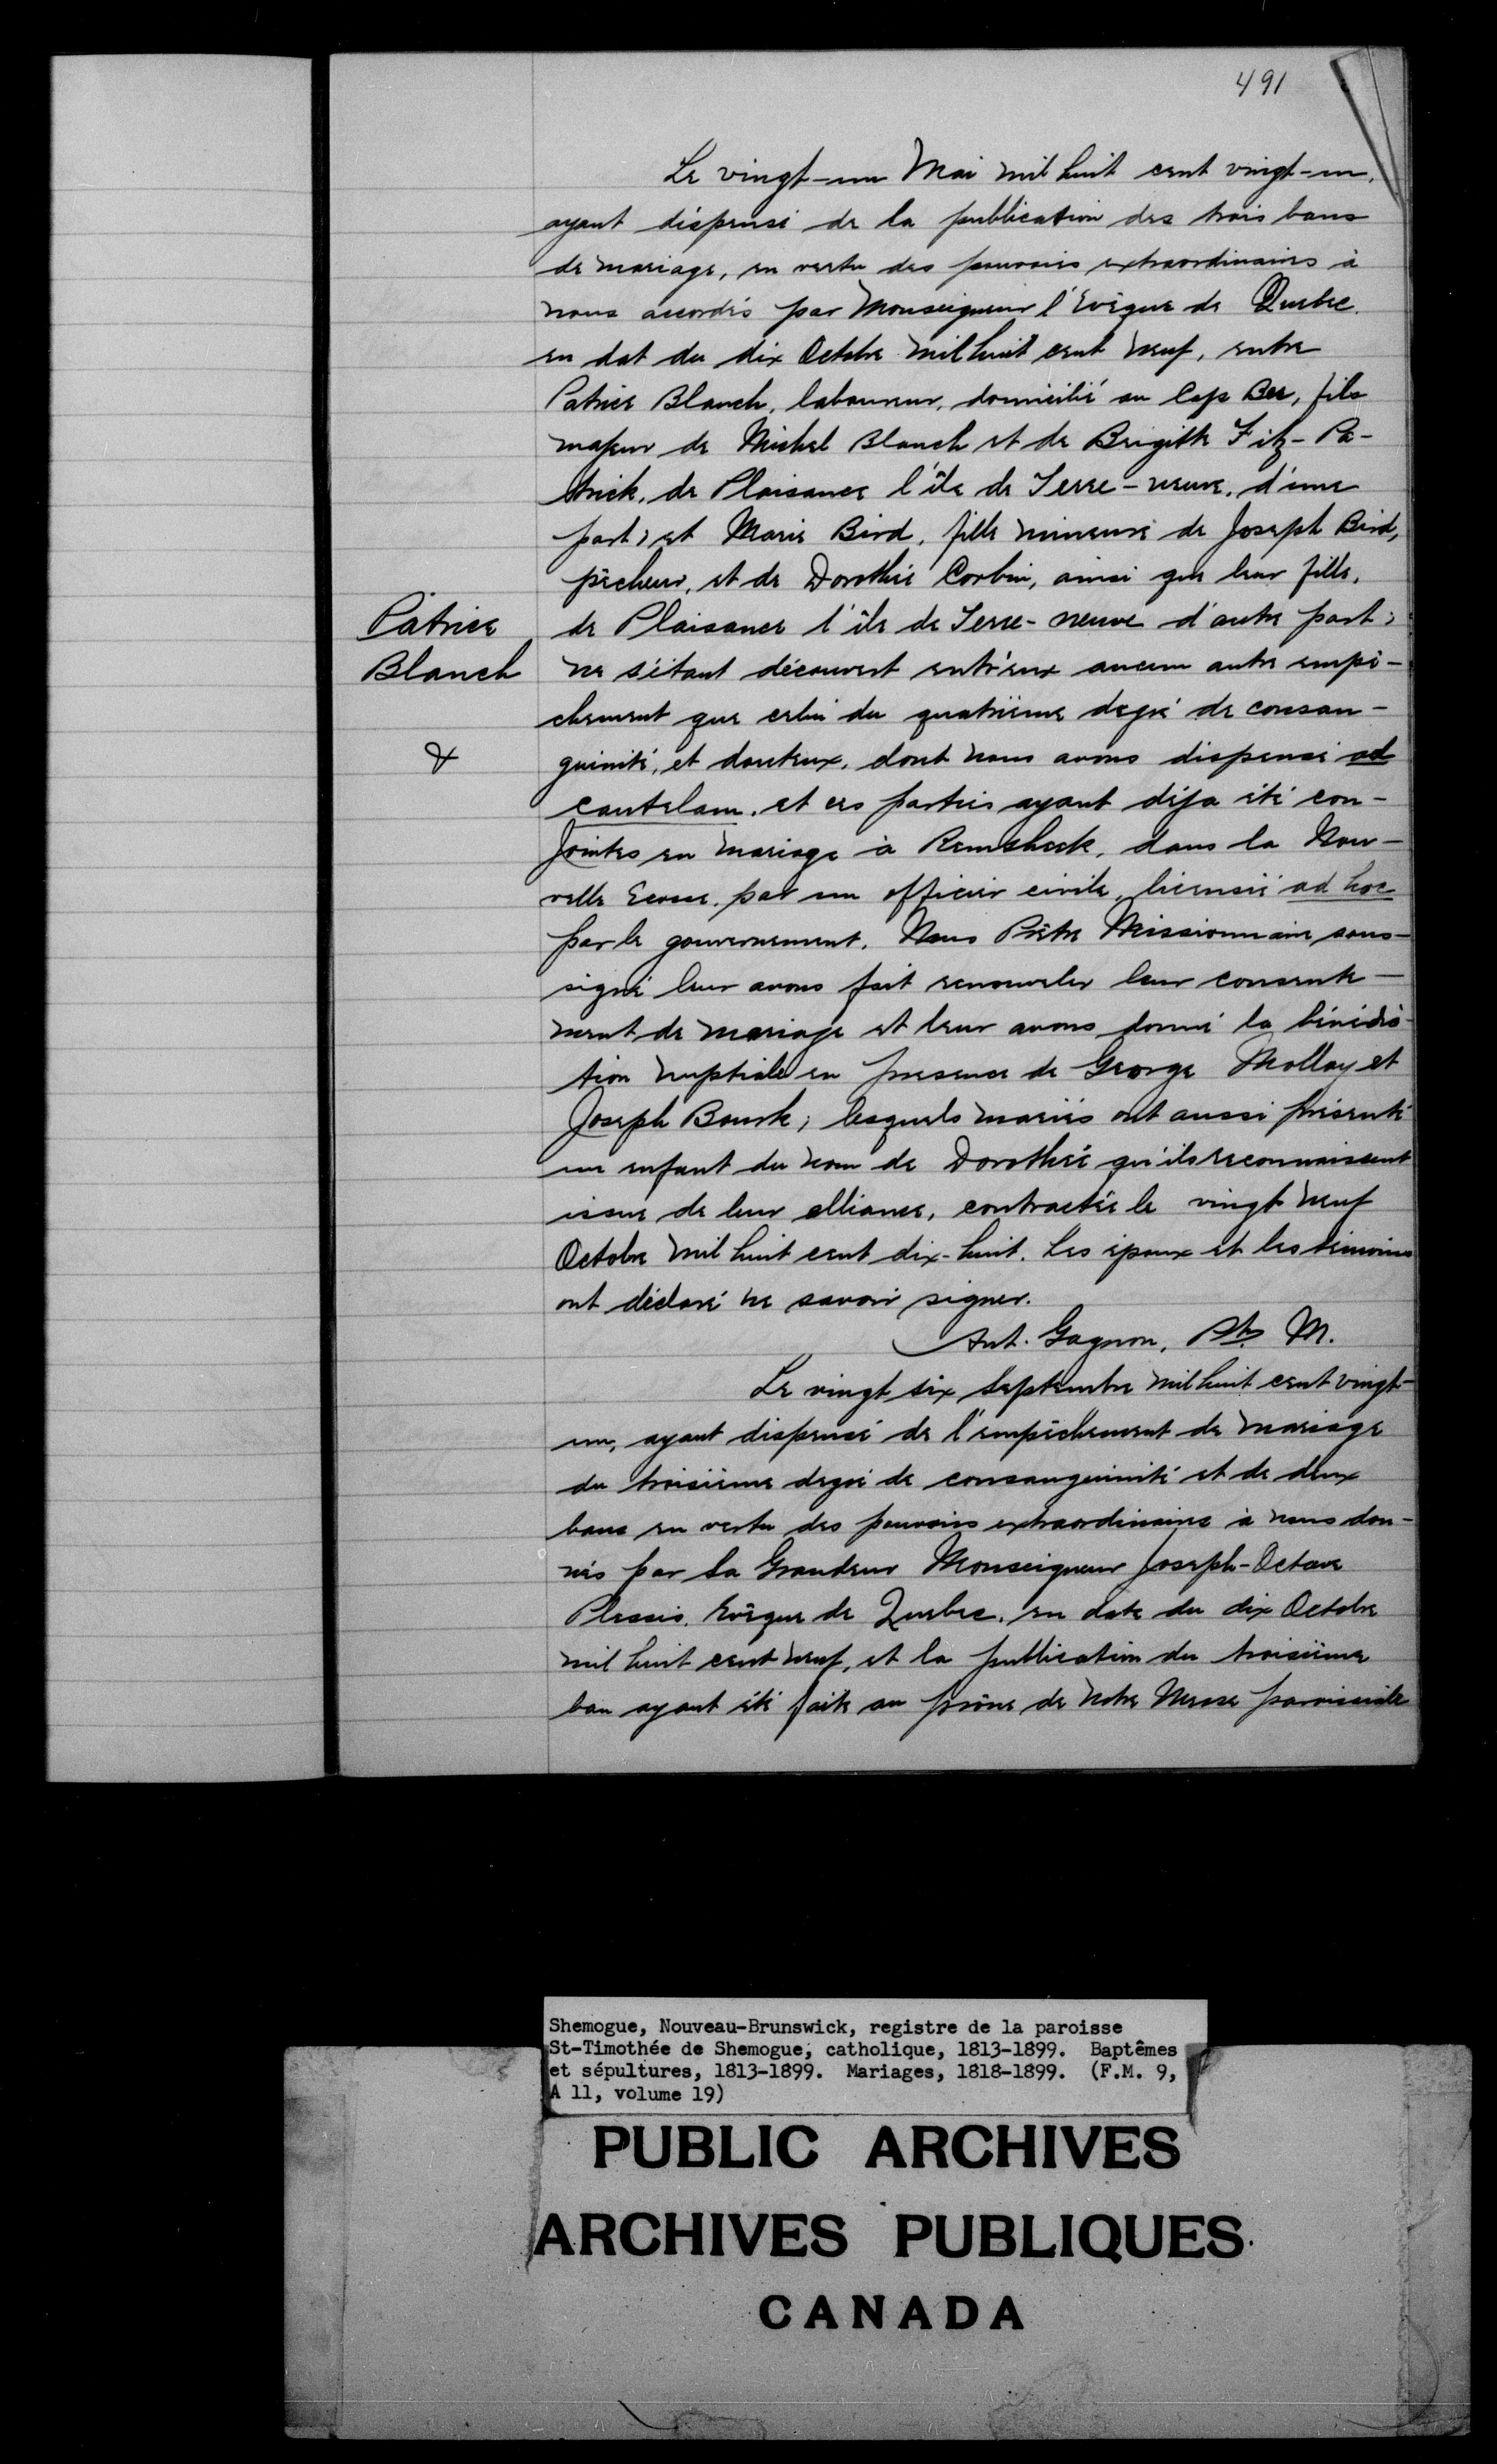 491
Le vingt-un Mai mil huit cent vingt-un,
ayant dispensé de la publication des trois bans
de mariage, en vertu des pouvoirs extraordinaires à
nous accordés par Monseigneur l'Evêque de Quebec.
en dat du dix Octobre mil huit cent neuf, entre
Patrice Blanch, laboureur, domicilié au Cap Bee, fils
majeur de Michel Blanch et de Brigitte Fitz-Pa-
trick, de Plaisance l'île de Terre-neuve, d'une
part; et Marie Bird, fille mineure de Joseph Bird,
pêcheur, et de Dorothée Corbin, ainsi que leur fille,
de Plaisance l'île de Terre-neuve d'autre part;
ne s'étant découvert entr'eux aucun autre empê-
chement que celui du quatrième degré de consan-
guinité, et douteux, dont nous avons dispensé ad
cautelam, et ces parties ayant déja été con-
jointes en mariage à Remsheck, dans la Nou-
velle Ecosse, par un officier civile, licensié ad hoc
par le gouvernement. Nous Prêtre Missionnaire sous-
signé leur avons fait renouveler leur consente-
ment de mariage et leur avons donné la bénédic-
tion nuptiale en presence de George Molloy et
Joseph Bourk; lesquels mariés ont aussi présenté
un enfant du nom de Dorothée qu'ils reconnaissent
issue de leur alliance, contractée le vingt neuf
Octobre mil huit cent dix-huit. Les époux et les témoins
ont déclaré ne savoir signer.
Ant. Gagnon, Ptr. M.
Patrice
Blanch
&
Le vingt six Septembre mil huit cent vingt-
un, ayant dispensé de l'empêchement de mariage
du troisième degré de consanguinité et de deux
bans en vertu des pouvoirs extraordinaires à nous don-
nés par Sa Grandeur Monseigneur Joseph-Octave
Plessis, Evêque de Quebec, en date du dix Octobre
mil huit cent neuf, et la publication du troisième
ban ayant été faite au prône de notre Messe paroissiale
Shemogue, Nouveau-Brunswick, registre de la paroisse
St-Timothée de Shemogue, catholique, 1813-1899. Baptêmes
et sépultures, 1813-1899. Mariages, 1818-1899. (F.M. 9,
A 11, volume 19)
PUBLIC ARCHIVES
ARCHIVES PUBLIQUES
CANADA